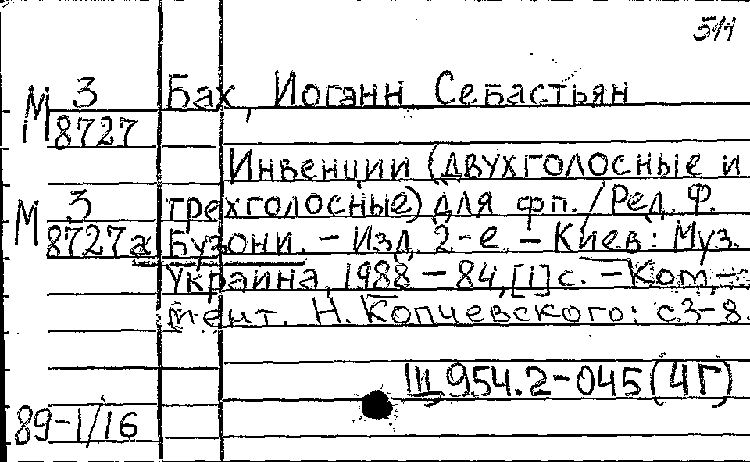 511
М 3
8727
Бах, Иоганн Себастьян
Инвенции (двухголосные и
М 3
8727а
трехголосные) для фп. / Ред. Ф.
Бузони. – Изд. 2-е. – Киев: Муз.
Украина, 1988 – 84, [1] с. – Ком.-
мент. Н. Копчевского: с3-8.
Щ 954.2-045(4Г)
89-1/16